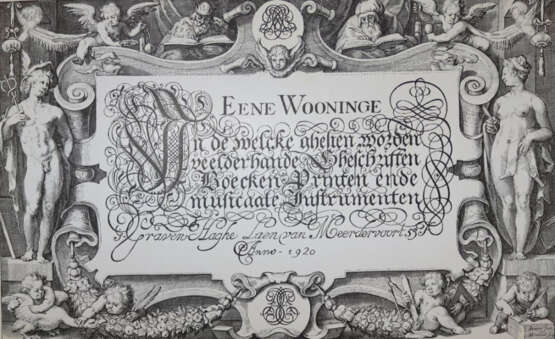 EENE WOONINGE
In de welcke ghesien worden
veelderhande Gheschriften
Boecken Printen ende
musicaale Instrumenten
'sGravenHaghe Laen van Meerdervoort
Anno 1920